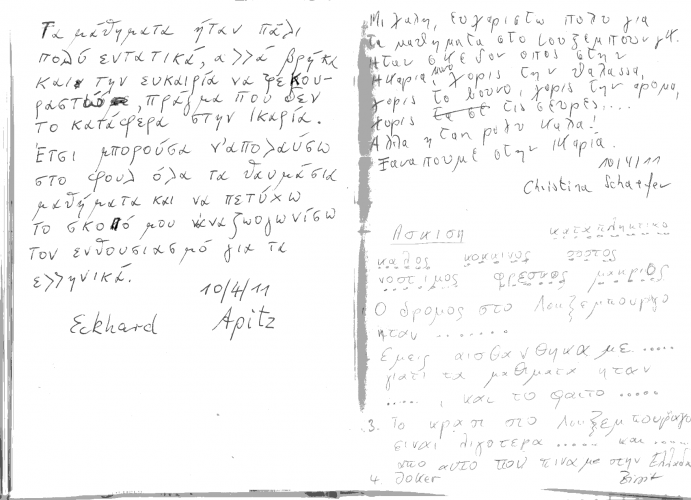 Τα μαθήματα ήταν πάλι
πολύ εντατικά, αλλά βρήκα
και την ευκαιρία να ξεκου-
ραστώ, πράγμα που δεν
το κατάφερα στην Ικαρία.
Έτσι μπορούσα ν'απολαύσω
στο φουλ όλα τα θαυμάσια
μαθήματα και να πετύχω
το σκοπό μου να ζωογωνίσω
τον ενθουσιασμό για τα
ελληνικά.
10/4/11
Eckhard Apitz
Μιχαλη, ευχαριστω πολυ για
τα μαθηματα στο Λουξεμπουργκ.
Ηταν σχεδον οπος στην
Ηκαρια μονο χορις την θαλασσα,
χορις το βουνο, χορις την δρομο,
χορις τις
Αλλα ηταν πολυ καλα!
Ξαναπουμε στην Ηκαρια.
10/4/11
Christina Schaefer
Ασκιση καταπληκτικο
καλος κοκκινος ζεστος
νοστιμος φρεσκος μακριος
Ο δρομος στο Λουξεμπουργο
ηταν .......
Εμεις αισθανθηκαμε .....
γιατι τα μαθηματα ηταν
....., και το φαιτο .....
3. Το κρασι στο Λουξεμπουργο
ειναι λιγοτερα ..... και ....
απο αυτο που πιναμε στην Ελλαδα
4.